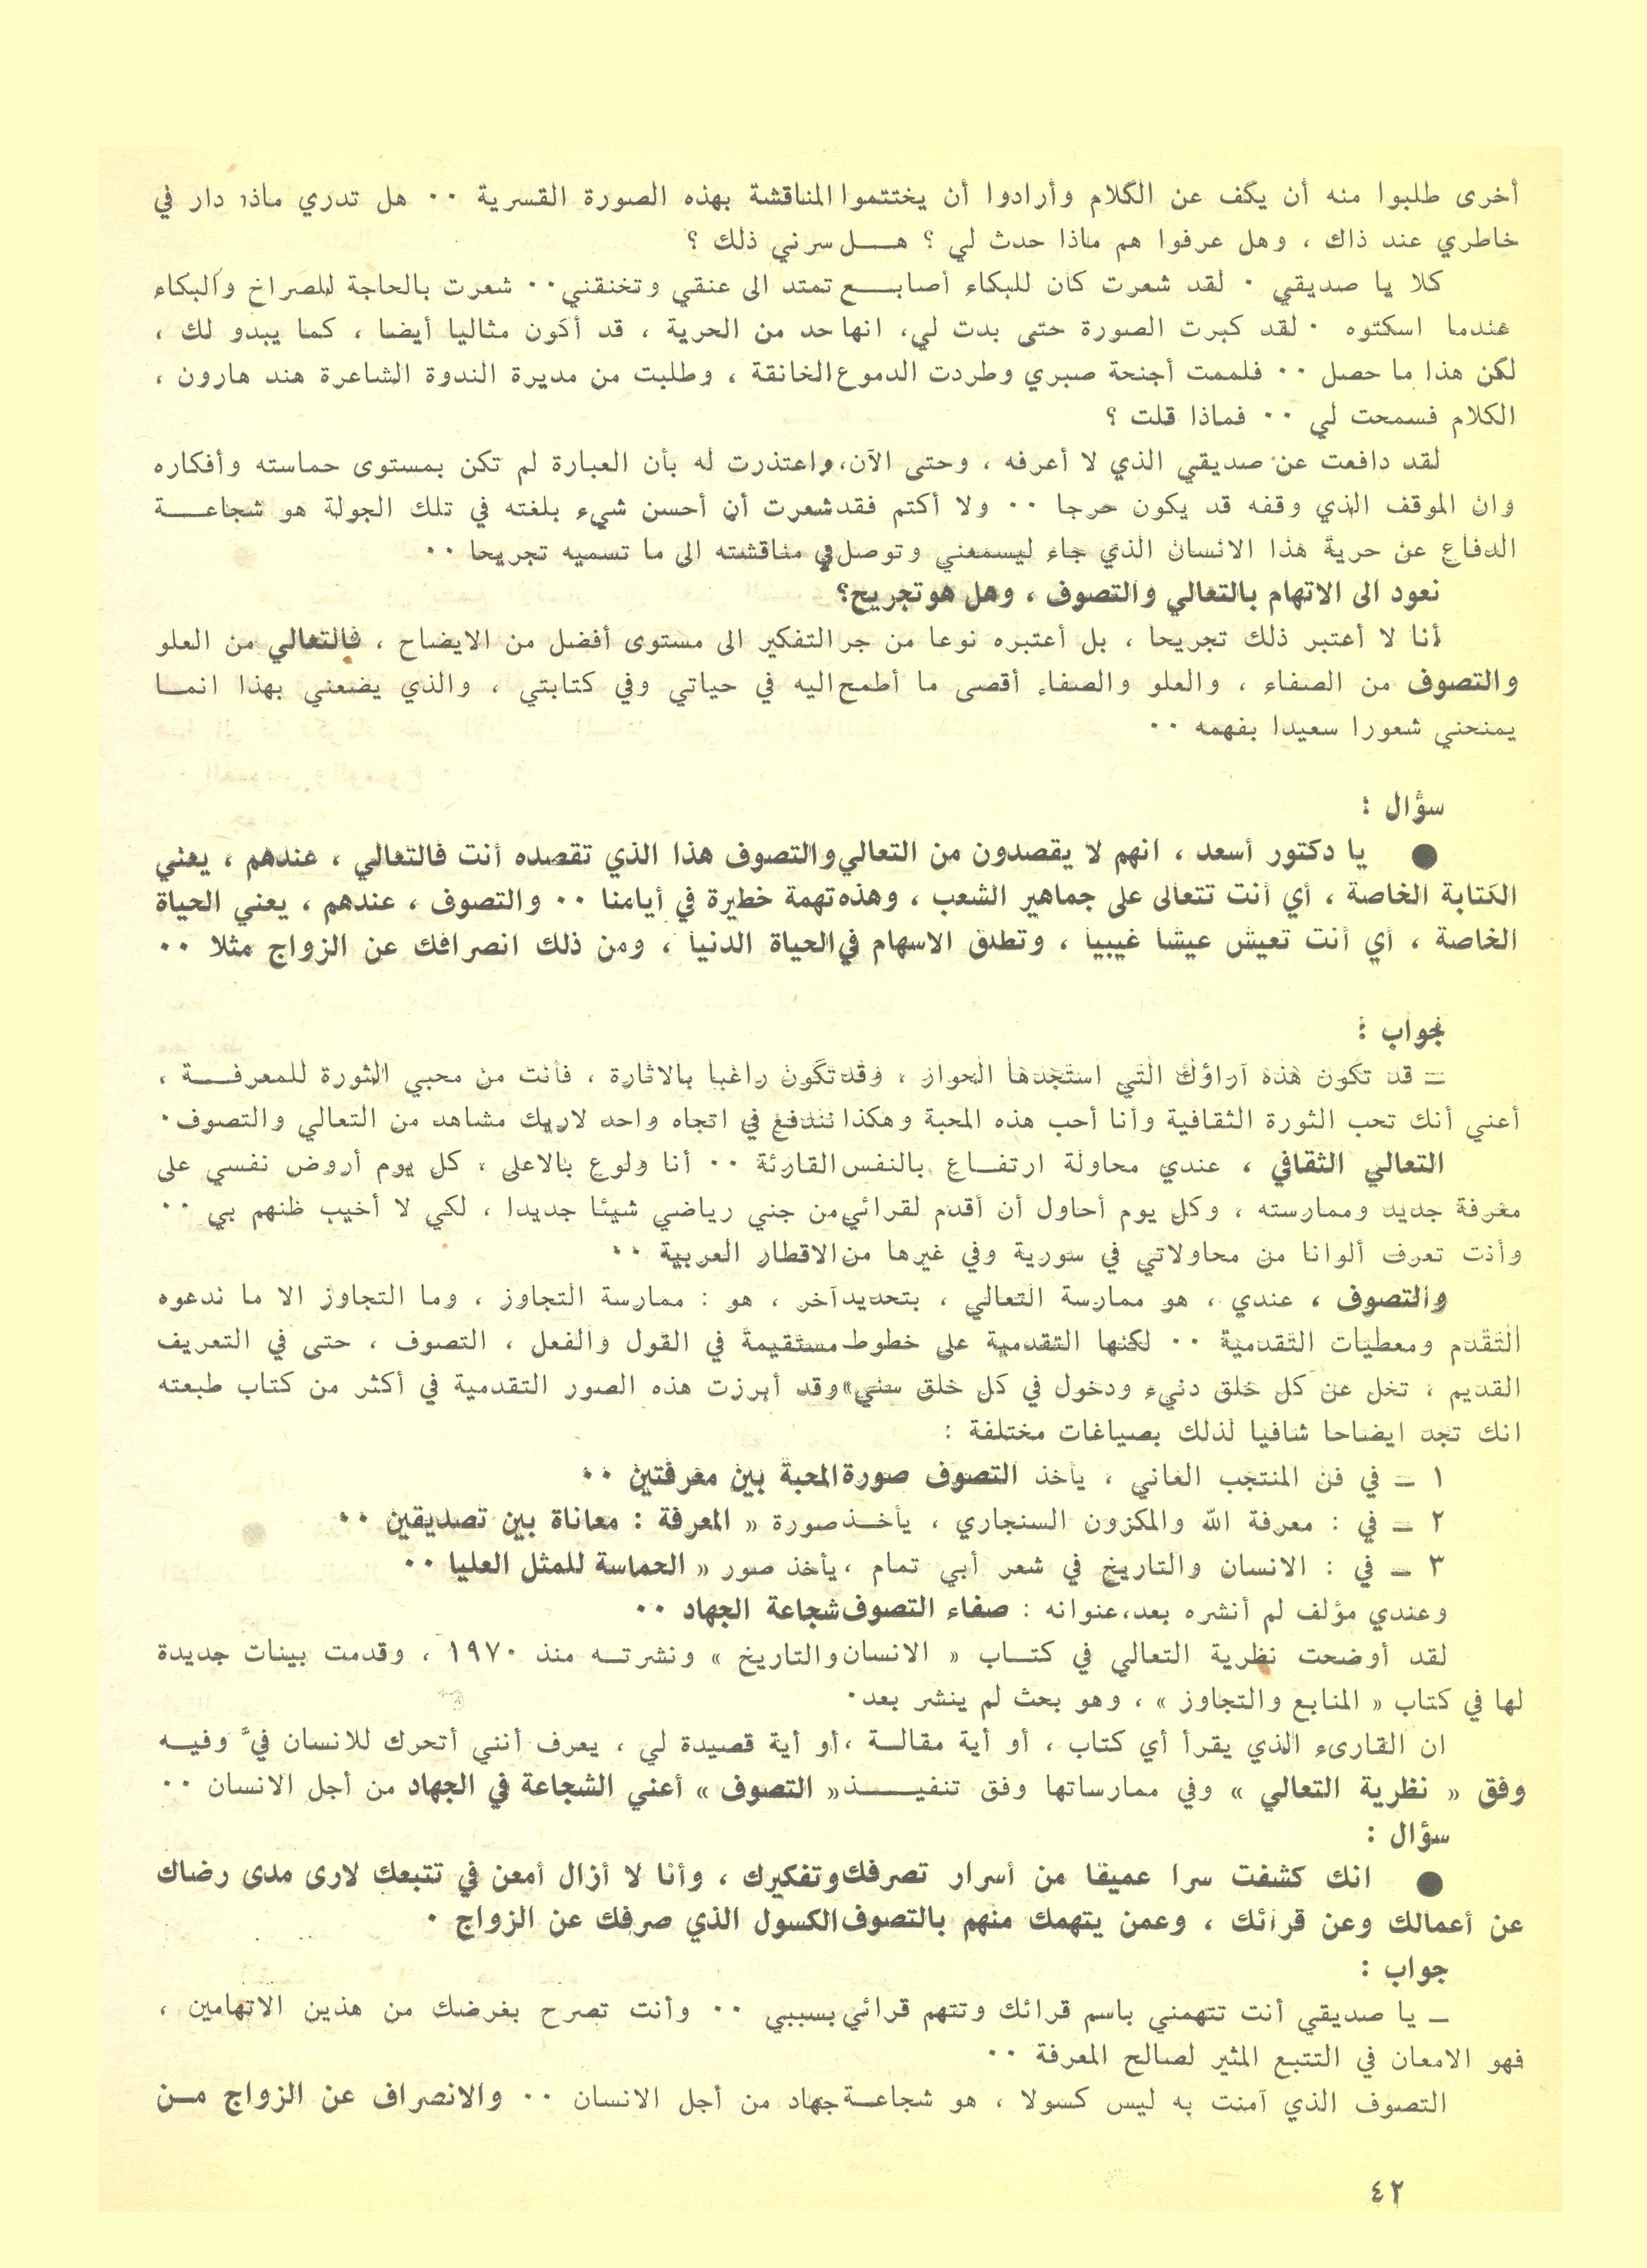 أخرى طلبوا منه أن يكف عن الكلام وأرادوا أن يختتموا المناقشة بهذه الصورة القسرية ٠٠ هل تدري ماذا دار في
خاطري عند ذاك ، وهل عرفوا هم ماذا حدث لي ؟ هـــل سرني ذلك ؟
كلا يا صديقي ٠ لقد شعرت كأن للبكاء أصابـــع تمتد الى عنقي وتخنقني ٠٠ شعرت بالحاجة للصراخ والبكاء
عندما اسكتوه ٠ لقد كبرت الصورة حتى بدت لي، انها حد من الحرية ، قد أكون مثاليا أيضا ، كما يبدو لك ،
لكن هذا ما حصل ٠٠ فلممت أجنحة صبري وطردت الدموع الخانقة ، وطلبت من مديرة الندوة الشاعرة هند هارون ،
الكلام فسمحت لي ٠٠ فماذا قلت ؟
لقد دافعت عن صديقي الذي لا أعرفه ، وحتى الآن، واعتذرت له بأن العبارة لم تكن بمستوى حماسته وأفكاره
وان الموقف الذي وقفه قد يكون حرجا ٠٠ ولا أكتم فقد شعرت أن أحسن شيء بلغته في تلك الجولة هو شجاعـــة
الدفاع عن حرية هذا الانسان الذي جاء ليسمعني وتوصل في مناقشته الى ما تسميه تجريحا ٠٠
نعود الى الاتهام بالتعالي والتصوف ، وهل هو تجريح؟
أنا لا أعتبر ذلك تجريحا ، بل أعتبره نوعا من جر التفكير الى مستوى أفضل من الايضاح ، فالتعالي من العلو
والتصوف من الصفاء ، والعلو والصفاء أقصى ما أطمح اليه في حياتي وفي كتابتي ، والذي يضعني بهذا انمـا
يمنحني شعورا سعيدا بفهمه ٠٠
سؤال :
● يا دكتور أسعد ، انهم لا يقصدون من التعالي والتصوف هذا الذي تقصده أنت فالتعالي ، عندهم ، يعني
الكتابة الخاصة ، أي أنت تتعالى على جماهير الشعب ، وهذه تهمة خطيرة في أيامنا ٠٠ والتصوف ، عندهم ، يعني الحياة
الخاصة ، أي أنت تعيش عيشا غيبيا ، وتطلق الاسهام في الحياة الدنيا ، ومن ذلك انصرافك عن الزواج مثلا ٠٠
جواب :
ـ قد تكون هذه آراؤك التي استجدها الحوار ، وقد تكون راغبا بالاثارة ، فأنت من محبي الثورة للمعرفـــة ،
أعني أنك تحب الثورة الثقافية وأنا أحب هذه المحبة وهكذا نندفع في اتجاه واحد لاريك مشاهد من التعالي والتصوف٠
التعالي الثقافي ، عندي محاولة ارتفـاع بالنفس القارئة ٠٠ أنا ولوع بالاعلى ، كل يوم أروض نفسي على
معرفة جديد وممارسته ، وكل يوم أحاول أن أقدم لقرائي من جني رياضي شيئا جديدا ، لكي لا أخيب ظنهم بي ٠٠
وأنت تعرف ألوانا من محاولاتي في سورية وفي غيرها من الاقطار العربية ٠٠
والتصوف ، عندي ، هو ممارسة التعالي ، بتحديد آخر ، هو : ممارسة التجاوز ، وما التجاوز الا ما ندعوه
التقدم ومعطيات التقدمية ٠٠ لكنها التقدمية على خطوط مستقيمة في القول والفعل ، التصوف ، حتى في التعريف
القديم ، تخل عن كل خلق دنيء ودخول في كل خلق سني» وقد أبرزت هذه الصور التقدمية في أكثر من كتاب طبعته
انك تجد ايضاحا شافيا لذلك بصياغات مختلفة :
١ ـ في فن المنتجب العاني ، يأخذ التصوف صورة المحبة بين معرفتين ٠٠
٢ ـ في : معرفة الله والمكزون السنجاري ، يأخـذ صورة « المعرفة : معاناة بين تصديقين ٠٠
٣ ـ في : الانسان والتاريخ في شعر أبي تمام ، يأخذ صور « الحماسة للمثل العليا ٠٠
وعندي مؤلف لم أنشره بعد، عنوانه : صفاء التصوف شجاعة الجهاد ٠٠
لقد أوضحت نظرية التعالي في كتـاب « الانسان والتاريخ » ونشرتـه منذ ١٩٧٠ ، وقدمت بينات جديدة
لها في كتاب « المنابع والتجاوز » ، وهو بحث لم ينشر بعد٠
ان القارىء الذي يقرأ أي كتاب ، أو أية مقالـة ، أو أية قصيدة لي ، يعرف أنني أتحرك للانسان فيَّ وفيـه
وفق « نظرية التعالي » وفي ممارساتها وفق تنفيـــذ « التصوف » أعني الشجاعة في الجهاد من أجل الانسان ٠٠
سؤال :
● انك كشفت سرا عميقا من أسرار تصرفك وتفكيرك ، وأنا لا أزال أمعن في تتبعك لارى مدى رضاك
عن أعمالك وعن قرائك ، وعمن يتهمك منهم بالتصوف الكسول الذي صرفك عن الزواج ٠
جواب :
ـ يا صديقي أنت تتهمني باسم قرائك وتتهم قرائي بسببي ٠٠ وأنت تصرح بغرضك من هذين الاتهامين ،
فهو الامعان في التتبع المثير لصالح المعرفة ٠٠
التصوف الذي آمنت به ليس كسولا ، هو شجاعـة جهاد من أجل الانسان ٠٠ والانصراف عن الزواج مـن
٤٢